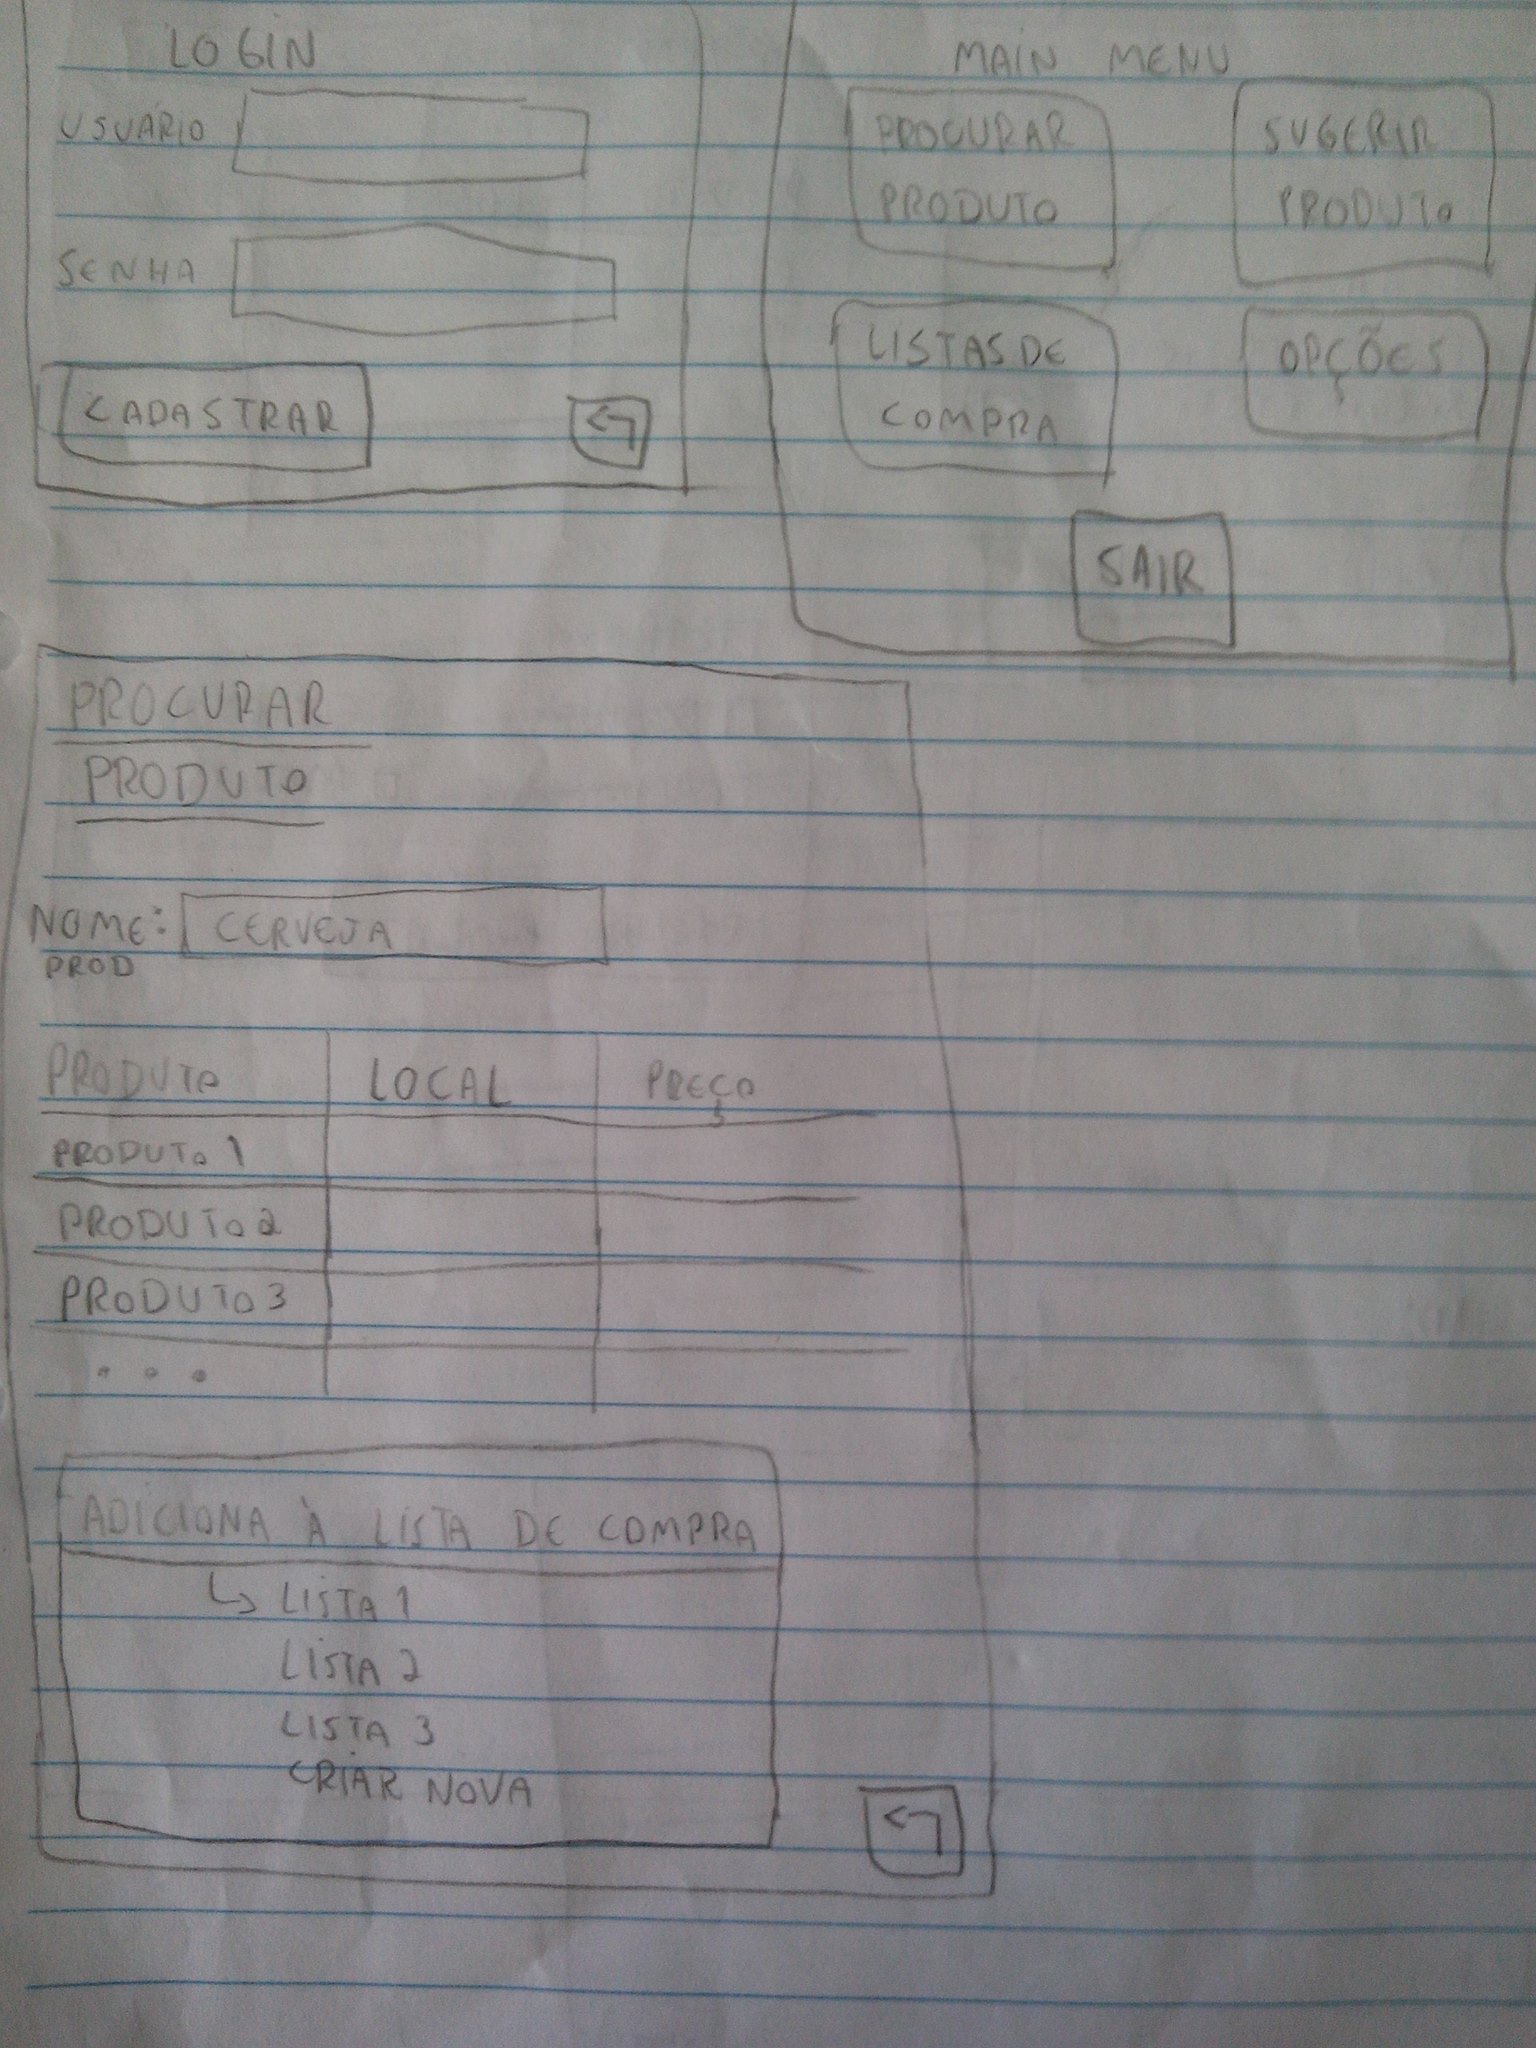 LOGIN
USUÁRIO
SENHA
CADASTRAR
MAIN MENU
PROCURAR
PRODUTO
SUGERIR
PRODUTO
LISTAS DE
COMPRA
OPÇÕES
SAIR
PROCURAR
PRODUTO
NOME: CERVEJA
PROD
PRODUTO LOCAL PREÇO
PRODUTO 1
PRODUTO 2
PRODUTO 3
...
ADICIONA À LISTA DE COMPRA
↳ LISTA 1
LISTA 2
LISTA 3
CRIAR NOVA